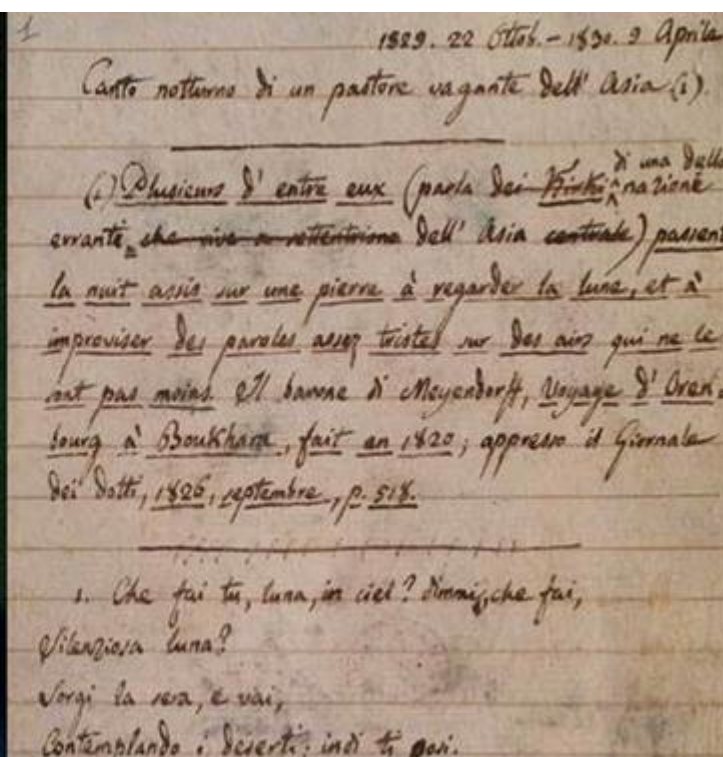 1
1829. 22 Ottob. - 1830. 9 Aprile
Canto notturno di un pastore vagante dell' Asia (1).
(1) Plusieurs d' entre eux (parla dei Kirki di una delle nazione
errante, che vive a settentrione dell' Asia centrale) passent
la nuit assis sur une pierre à regarder la lune, et à
improviser des paroles assez tristes sur des airs qui ne le
sont pas moins. Il barone di Meyendorff, Voyage d' Oren-
bourg à Boukhara, fait en 1820; appresso il Giornale
dei dotti, 1826, septembre, p. 518.
1. Che fai tu, luna, in ciel? dimmi, che fai,
Silenziosa luna?
Sorgi la sera, e vai,
Contemplando i deserti; indi ti posi.